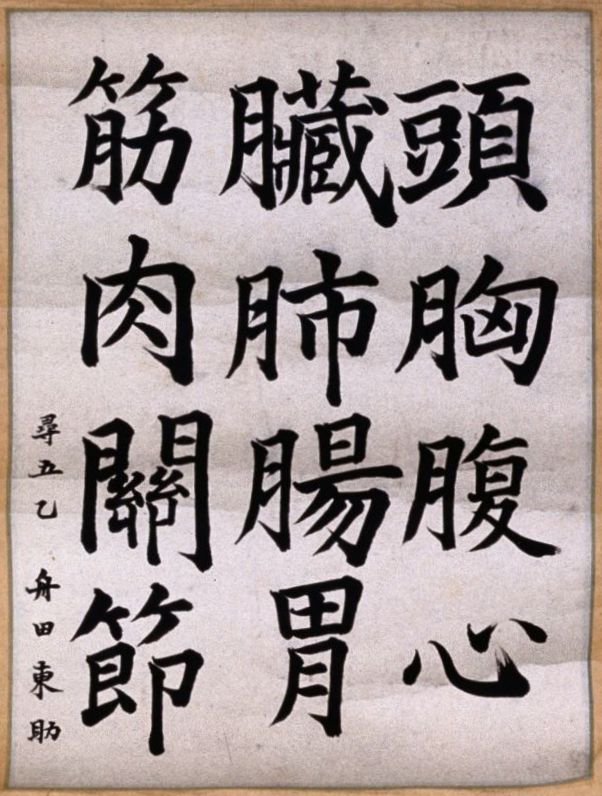 頭胸腹心
臓肺腸胃
筋肉關節
尋五乙 舟田東助